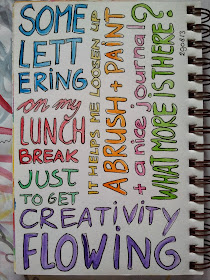 SOME
LETT
ERING
on my
LUNCH
BREAK
JUST
TO GET
CREATIVITY
FLOWING
IT HELPS ME LOOSEN UP
A BRUSH + PAINT
+ a nice journal
WHAT MORE IS THERE?